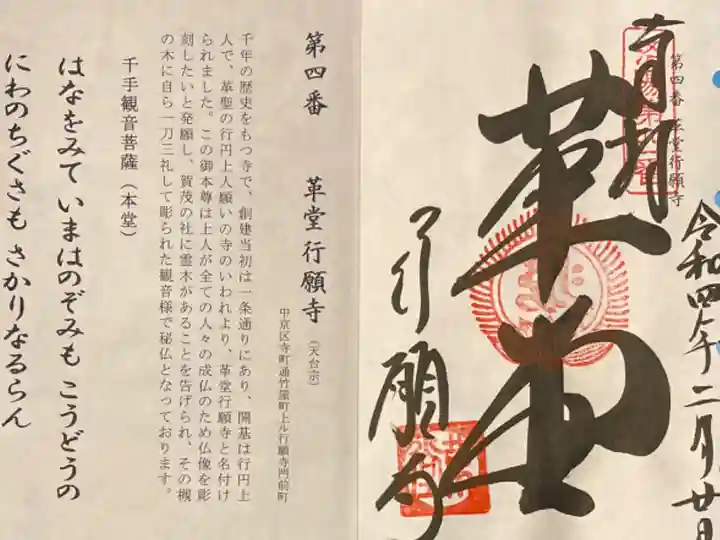 奉拝
第四番 革堂行願寺
令和四年二月廿日
革堂
行願寺
第四番 革堂行願寺(天台宗)
中京区寺町通竹屋町上ル行願寺門前町
千年の歴史をもつ寺で、創建当初は一条通りにあり、開基は行円上
人で、革聖の行円上人願いの寺のいわれより、革堂行願寺と名付け
られました。この御本尊は上人が全ての人々の成仏のため仏像を彫
刻したいと発願し、賀茂の社に霊木があることを告げられ、その槻
の木に自ら一刀三礼して彫られた観音様で秘仏となっております。
千手観音菩薩(本堂)
はなをみて いまはのぞみも こうどうの
にわのちぐさも さかりなるらん